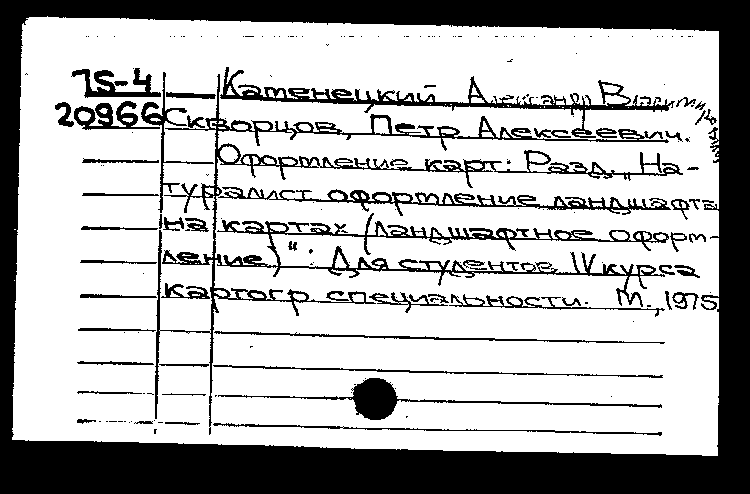 75-4 Каменецкий, Александр Владимирович,
20966 Скворцов, Петр Алексеевич.
Оформление карт: Разд. „На-
туралист. оформление ландшафта
на картах (ландшафтное оформ-
ление)“: Для студентов IV курса
картогр. специальности. М., 1975.